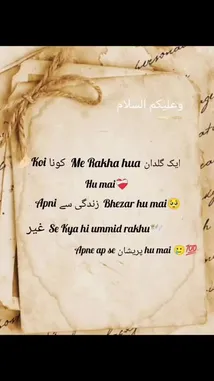 وعلیکم السلام
Koi کونا Me Rakha hua ایک گلدان
Hu mai❤️‍🩹
Apni زندگی سے Bhezar hu mai🥺
غیر Se Kya hi ummid rakhu
Apne ap se پریشان hu mai 🥲💯